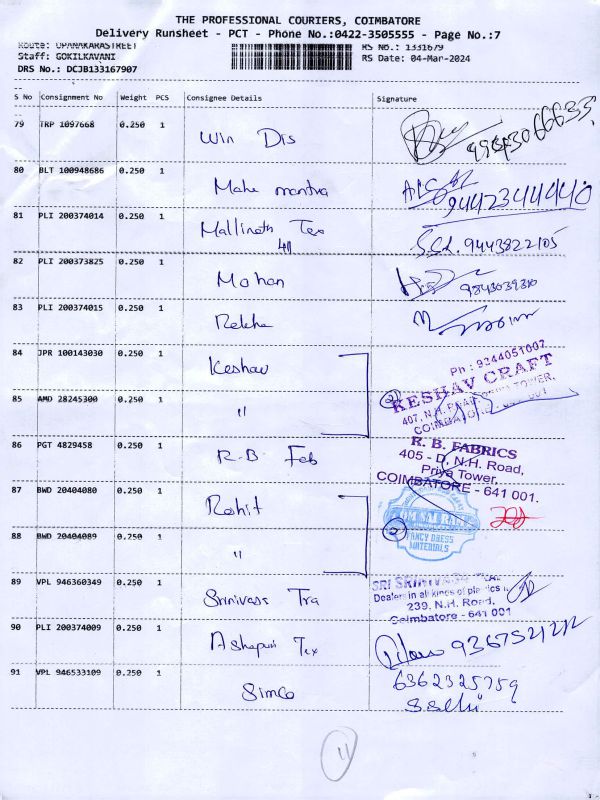 THE PROFESSIONAL COURIERS, COIMBATORE
Delivery Runsheet - PCT - Phone No.:0422-3505555 - Page No.:7
Route: UPANAKARASTREET RS No.: 1331679
Staff: GOKILKAVANI RS Date: 04-Mar-2024
DRS No.: DCJB133167907
S No Consignment No Weight PCS Consignee Details Signature
79 TRP 1097668 0.250 1 Win Dis
80 BLT 100948686 0.250 1 Mahe mantra 9442344440
81 PLI 200374014 0.250 1 Mallinath Tex S.S.L. 9443822105
82 PLI 200373825 0.250 1 Mohan 9843039310
83 PLI 200374015 0.250 1 Rekha
84 JPR 100143030 0.250 1 Keshav
Ph : 9344051007
KESHAV CRAFT
85 AMD 28245300 0.250 1 "
86 PGT 4829458 0.250 1 R.B. Fab
R. B. FABRICS
405 - D, N.H. Road,
Priya Tower,
COIMBATORE - 641 001.
87 BWD 20404080 0.250 1 Rohit
OM SAI RAM
FANCY DRESS
MATERIALS
88 BWD 20404089 0.250 1 "
89 VPL 946360349 0.250 1 Srinivass Tra
Dealers in all kinds of
239, N.H. Road,
Coimbatore - 641 001
90 PLI 200374009 0.250 1 Ashapuri Tex
91 VPL 946533109 0.250 1 Simco 6362325759
11